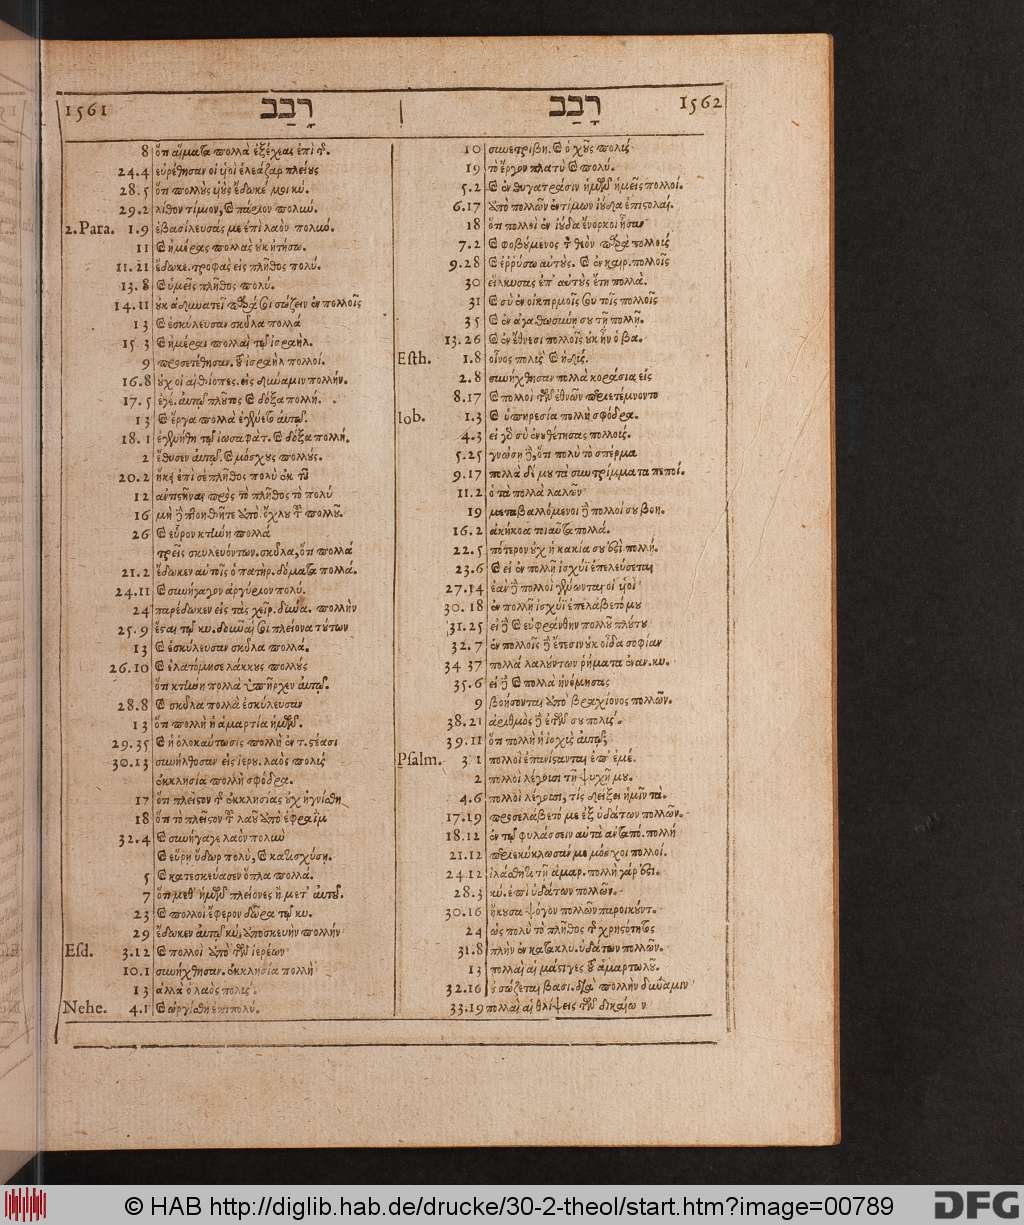 1561 רָבַב
8 ὅτι αἵματα πολλὰ ἐξέχεας ἐπὶ τ.
24.4 εὑρέθησαν οἱ υἱοὶ ἐλεάζαρ πλείους
28.5 ὅτι πολλοὺς υἱοὺς ἔδωκέ μοι κύ.
29.2 λίθον τίμιον, καὶ πάριον πολύν.
2.Para. 1.9 ἐβασίλευσάς με ἐπὶ λαὸν πολύν.
11 καὶ ἡμέρας πολλὰς οὐκ ᾐτήσω.
11.21 ἔδωκε. τροφὰς εἰς πλῆθος πολύ.
13.8 καὶ ὑμεῖς πλῆθος πολύ.
14.11 οὐκ ἀδυνατεῖ παρὰ σοὶ σώζειν ἐν πολλοῖς
13 καὶ ἐσκύλευσαν σκῦλα πολλά
15 3 καὶ ἡμέραι πολλαὶ τῷ ἰσραήλ.
9 προσετέθησαν. τοῦ ἰσραὴλ πολλοί.
16.8 οὐχ οἱ αἰθίοπες. εἰς δύναμιν πολλήν.
17.5 ἐγέ. αὐτῷ πλοῦτος καὶ δόξα πολλή.
13 καὶ ἔργα πολλὰ ἐγένετο αὐτῷ.
18.1 ἐγενήθη τῷ ἰωσαφάτ. καὶ δόξα πολλή,
2 ἔθυσεν αὐτῷ. καὶ μόσχους πολλούς.
20.2 ἥκει ἐπὶ σὲ πλῆθος πολὺ ἐκ τῆς
12 ἀντιστῆναι πρὸς τὸ πλῆθος τὸ πολύ
16 μὴ δὲ πτοηθῆτε ἀπὸ. ὄχλου τοῦ πολλοῦ.
26 καὶ εὗρον κτήνη πολλά
τρεῖς σκυλευόντων. σκῦλα, ὅτι πολλά
21.2 ἔδωκεν αὐτοῖς ὁ πατὴρ. δόματα πολλά.
24.11 καὶ συνήγαγον ἀργύριον πολύ.
24 παρέδωκεν εἰς τὰς χεῖρ. δύνα. πολλὴν
25.9 ἔστι τῷ κυ. δοῦναί σοι πλείονα τούτων
13 καὶ ἐσκύλευσαν σκῦλα πολλά.
26.10 καὶ ἐλατόμησε λάκκους πολλούς
ὅτι κτήνη πολλὰ ὑπῆρχεν αὐτῷ.
28.8 καὶ σκῦλα πολλὰ ἐσκύλευσαν
13 ὅτι πολλὴ ἡ ἁμαρτία ἡμῶν.
29.35 καὶ ἡ ὁλοκαύτωσις πολλὴ ἐν τ. στέασι
30.13 συνήχθησαν εἰς ἱερου. λαὸς πολύς
ἐκκλησία πολλὴ σφόδρα.
17 ὅτι πλεῖστον τῆς ἐκκλησίας οὐχ ἡγνίσθη
18 ὅτι τὸ πλεῖστον τοῦ λαοῦ ἀπὸ ἐφραΐμ
32.4 καὶ συνήγαγε λαὸν πολὺν
καὶ εὕρῃ ὕδωρ πολὺ, καὶ κατισχύσῃ.
5 καὶ κατεσκεύασεν ὅπλα πολλά.
7 ὅτι μεθ' ἡμῶν πλείονες ἢ μετ' αὐτοῦ.
23 καὶ πολλοὶ ἔφερον δῶρα τῷ κυ.
29 ἔδωκεν αὐτῷ κύ, ἀποσκευὴν πολλήν
Esd. 3.12 καὶ πολλοὶ ἀπὸ τῶν ἱερέων
10.1 συνήχθησαν. ἐκκλησία πολλὴ
13 ἀλλὰ ὁ λαὸς πολύς.
Nehe. 4.1 καὶ ὠργίσθη ἐπιπολύ.
רָבַב 1562
10 συνετρίβη. καὶ ὁ χοῦς πολύς
19 τὸ ἔργον πλατὺ καὶ πολύ.
5.2 καὶ ἐν θυγατράσιν ἡμῶν ἡμεῖς πολλοί.
6.17 ἀπὸ πολλῶν ἐντίμων ἰούδα ἐπιστολαί.
18 ὅτι πολλοὶ ἐν ἰούδα ἔνορκοι ἦσαν
7.2 καὶ φοβούμενος τὸν θεὸν παρὰ πολλούς
9.28 καὶ ἐρρύσω αὐτούς. καὶ ἐν καιρ. πολλοῖς
30 εἵλκυσας ἐπ' αὐτοὺς ἔτη πολλά.
31 καὶ σὺ ἐν οἰκτιρμοῖς σου τοῖς πολλοῖς
35 καὶ ἐν ἀγαθωσύνῃ σου τῇ πολλῇ.
13.26 καὶ ἐν ἔθνεσι πολλοῖς οὐκ ἦν ὁ βα.
Esth. 1.8 οἶνος πολὺς καὶ ἡδύς.
2.8 συνήχθησαν πολλὰ κοράσια εἰς
8.17 καὶ πολλοὶ τῶν ἐθνῶν περιετέμνοντο
Iob. 1.3 καὶ ὑπηρεσία πολλὴ σφόδρα.
4.3 εἰ γὰρ σὺ ἐνουθέτησας πολλούς.
5.25 γνώσῃ δὲ, ὅτι πολὺ τὸ σπέρμα
9.17 πολλὰ δέ μου τὰ συντρίμματα πεποί.
11.2 ὁ τὰ πολλὰ λαλῶν
19 μεταβαλλόμενοι δὲ πολλοί σου δεη.
16.2 ἀκήκοα τοιαῦτα πολλά.
22.5 πότερον οὐχ ἡ κακία σου ἐστὶ πολλή.
23.6 καὶ εἰ ἐν πολλῇ ἰσχύϊ ἐπελεύσεται
27.14 ἐὰν δὲ πολλοὶ γένωνται οἱ υἱοὶ
30.18 ἐν πολλῇ ἰσχύϊ ἐπελάβετό μου
31.25 εἰ δὲ καὶ εὐφράνθην πολλοῦ πλούτου
32.7 ἐν πολλοῖς δὲ ἔτεσιν οὐκ οἶδα σοφίαν
34 37 πολλὰ λαλούντων ῥήματα ἐναν. κυ.
35.6 εἰ δὲ καὶ πολλὰ ἠνόμησας
9 βοήσονται ἀπὸ βραχίονος πολλῶν.
38.21 ἀριθμὸς δὲ ἐτῶν σου πολύς.
39.11 ὅτι πολλὴ ἡ ἰσχὺς αὐτῷ;
Psalm. 3 1 πολλοὶ ἐπανίστανται ἐπ' ἐμέ.
2 πολλοὶ λέγουσι τῇ ψυχῇ μου.
4.6 πολλοὶ λέγουσι, τίς δείξει ἡμῖν τὰ.
17.19 προσελάβετό με ἐξ ὑδάτων πολλῶν.
18.12 ἐν τῷ φυλάσσειν αὐτὰ ἀνταπό. πολλή
21.12 περιεκύκλωσάν με μόσχοι πολλοί.
24.12 ἱλάσθητι τῇ ἁμαρ. πολλὴ γάρ ἐστι.
28.3 κύ. ἐπὶ ὑδάτων πολλῶν.
30.16 ἤκουσα ψόγον πολλῶν παροικούντ.
24 ὡς πολὺ τὸ πλῆθος τῆς χρηστότητος
31.8 πλὴν ἐν κατακλυ. ὑδάτων πολλῶν.
13 πολλαὶ αἱ μάστιγες τοῦ ἁμαρτωλοῦ.
32.16 οὐ σώζεται βασι. διὰ πολλὴν δύναμιν
33.19 πολλαὶ αἱ θλίψεις τῶν δικαίων
© HAB http://diglib.hab.de/drucke/30-2-theol/start.htm?image=00789
DFG